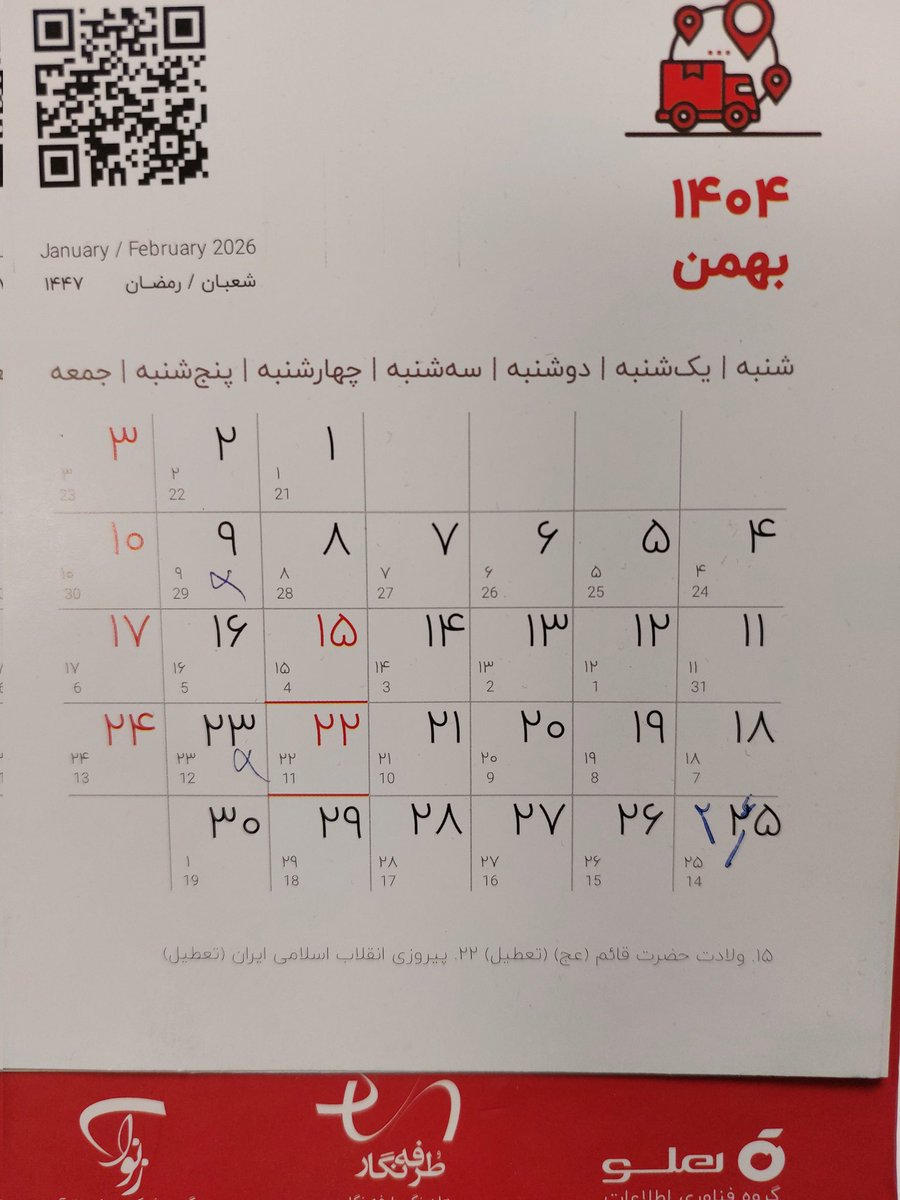 ۱۴۰۴
بهمن
January / February 2026
شعبان / رمضان ۱۴۴۷
شنبه | یک‌شنبه | دوشنبه | سه‌شنبه | چهارشنبه | پنج‌شنبه | جمعه
۱ ۲ ۳
۱ ۲ ۳
21 22 23
۴ ۵ ۶ ۷ ۸ ۹ ۱۰
۴ ۵ ۶ ۷ ۸ ۹ ۱۰
24 25 26 27 28 29 30
۱۱ ۱۲ ۱۳ ۱۴ ۱۵ ۱۶ ۱۷
۱۱ ۱۲ ۱۳ ۱۴ ۱۵ ۱۶ ۱۷
31 1 2 3 4 5 6
۱۸ ۱۹ ۲۰ ۲۱ ۲۲ ۲۳ ۲۴
۱۸ ۱۹ ۲۰ ۲۱ ۲۲ ۲۳ ۲۴
7 8 9 10 11 12 13
۲۵ ۲۶ ۲۷ ۲۸ ۲۹ ۳۰
۲۵ ۲۶ ۲۷ ۲۸ ۲۹ ۱
14 15 16 17 18 19
۱۵. ولادت حضرت قائم (عج) (تعطیل) ۲۲. پیروزی انقلاب اسلامی ایران (تعطیل)
هلو
گروه فناوری اطلاعات
طُرفه‌نگار